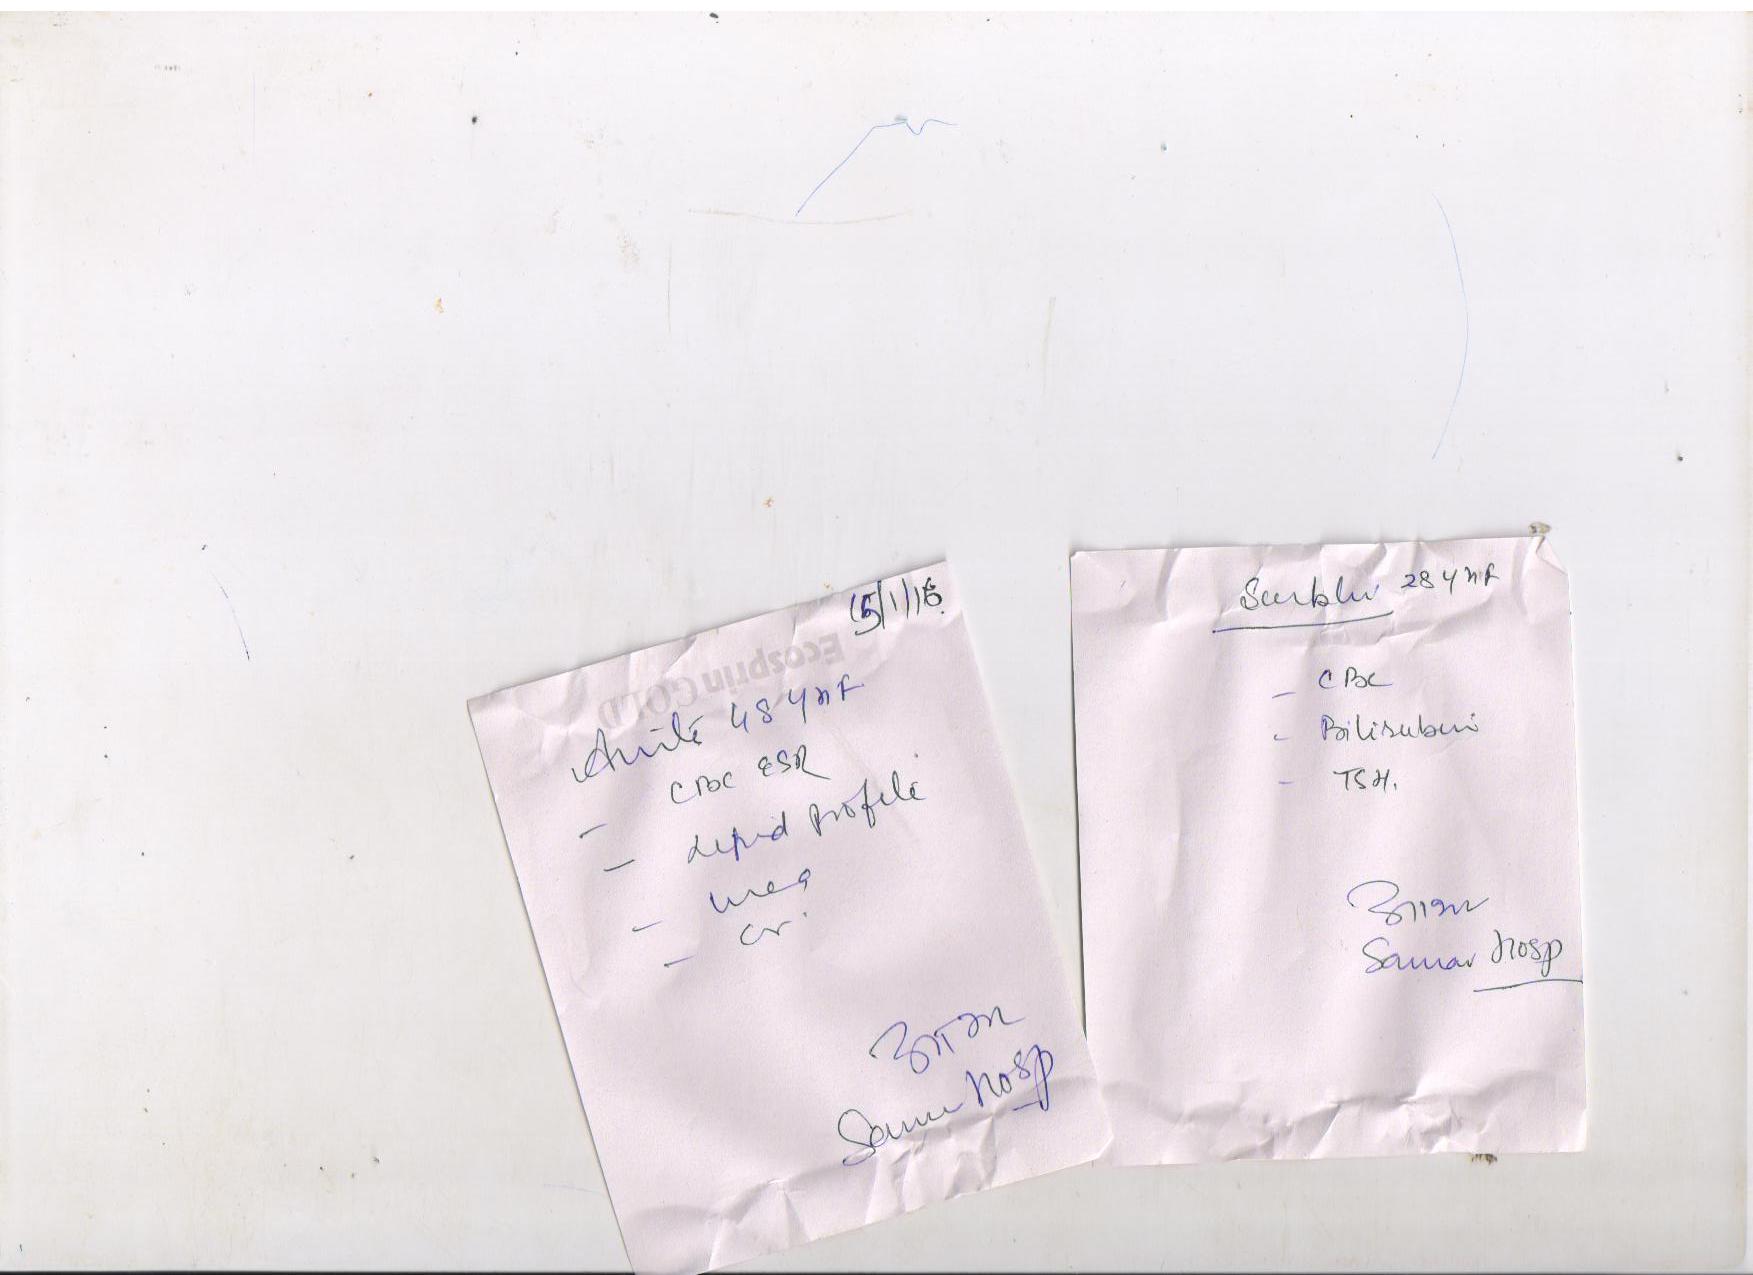 15/1/16
Ecosprin GOLD
Anita 48 yrs F
- CBC ESR
- Lipid Profile
- Urea
- Cr.
Samar Hosp
Surbhi 28 yrs F
- CBC
- Bilirubin
- TSH.
Samar Hosp